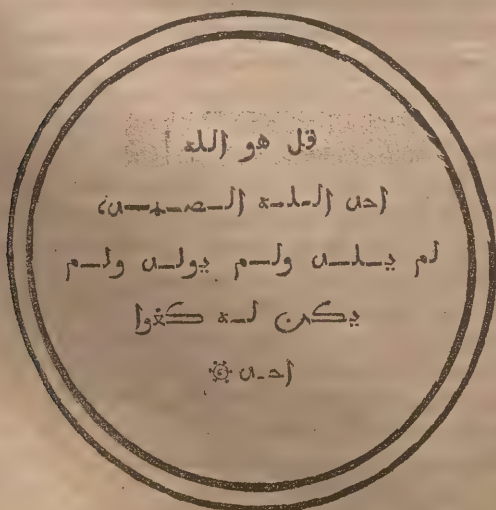 قل هو الله
احد الله الصمد،
لم يلد ولم يولد ولم
يكن له كفوا
احد ۞